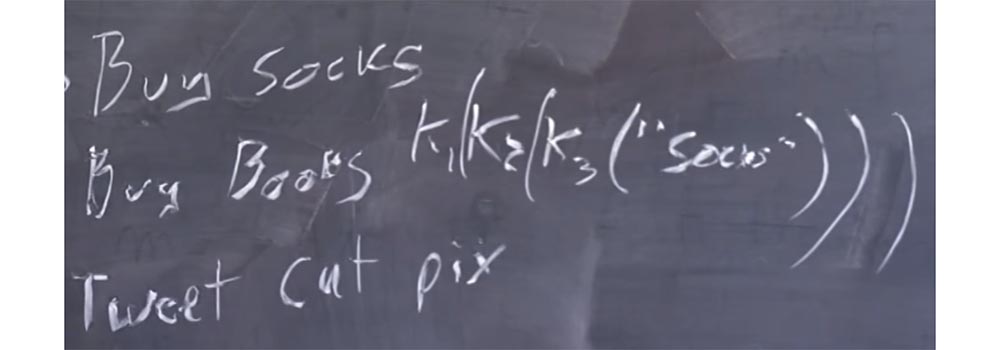 Buy socks
Buy Books K₁(K₂(K₃("Socks")))
Tweet cat pix